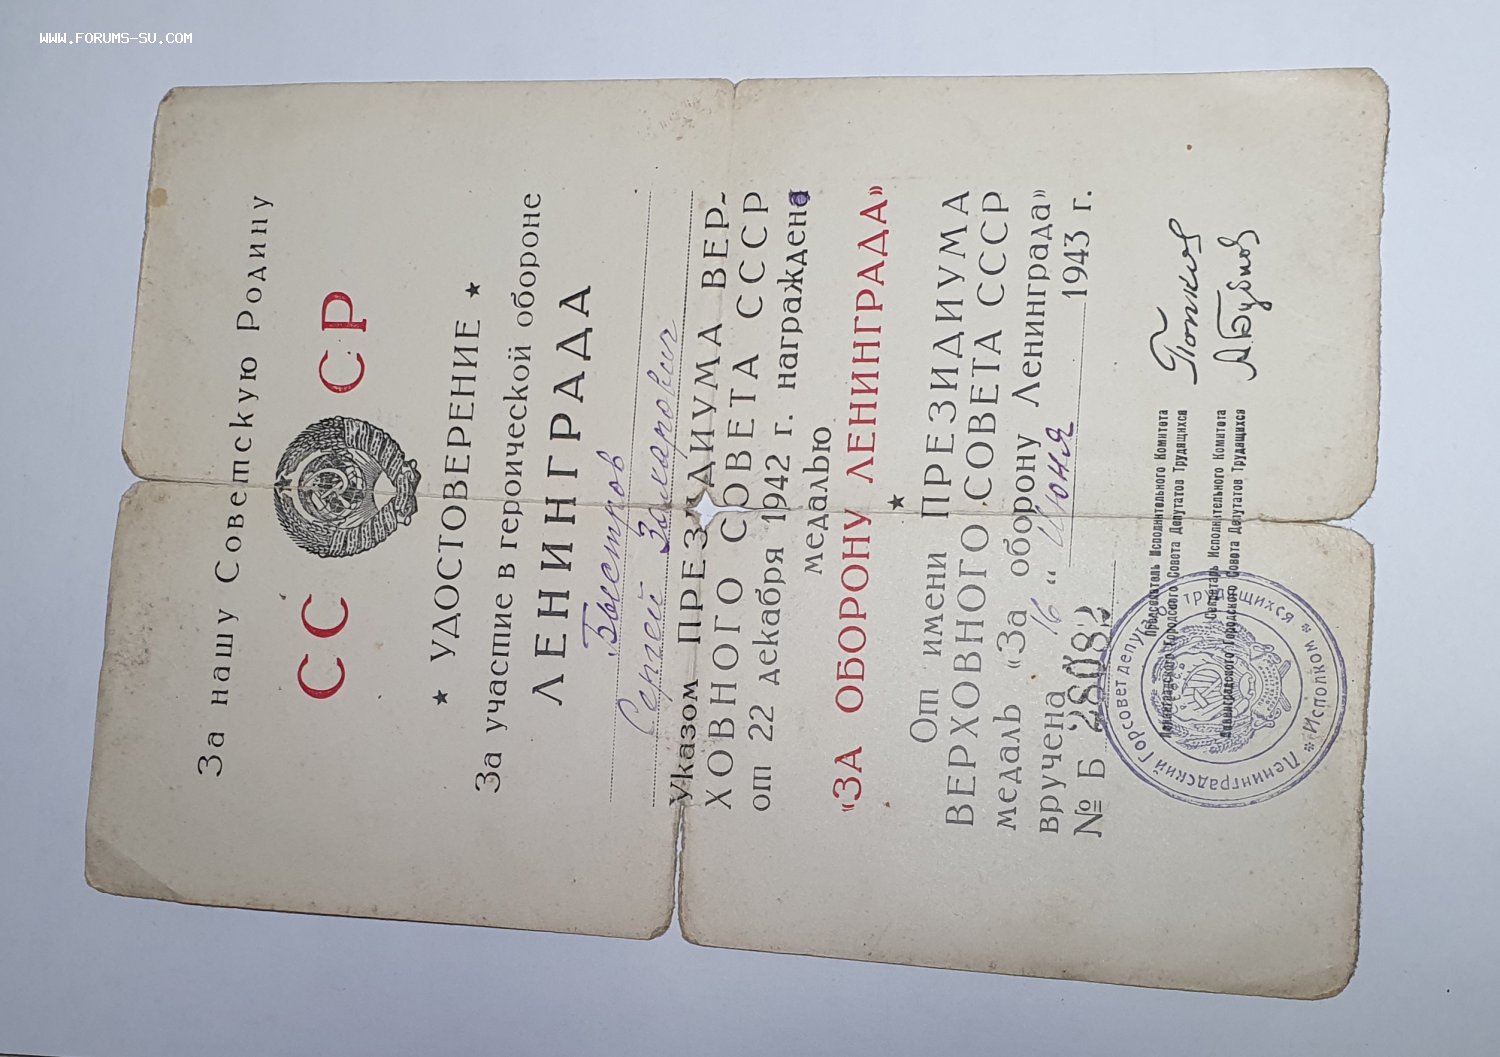 WWW.FORUMS-SU.COM
За нашу Советскую Родину
СС СР
★ УДОСТОВЕРЕНИЕ ★
За участие в героической обороне
ЛЕНИНГРАДА
Быстров
Сергей
Указом ПРЕЗИДИУМА ВЕР-
ХОВНОГО СОВЕТА СССР
от 22 декабря 1942 г. награжден
медалью
«ЗА ОБОРОНУ ЛЕНИНГРАДА»
★
От имени ПРЕЗИДИУМА
ВЕРХОВНОГО СОВЕТА СССР
медаль «За оборону Ленинграда»
вручена 16 " Июня 1943 г.
№ Б 26082
Председатель Исполнительного Комитета
Ленинградского Городского Совета Депутатов Трудящихся
Попков
Секретарь Исполнительного Комитета
Ленинградского Городского Совета Депутатов Трудящихся
АБубнов
Ленинградский Горсовет депутатов трудящихся * Исполком *